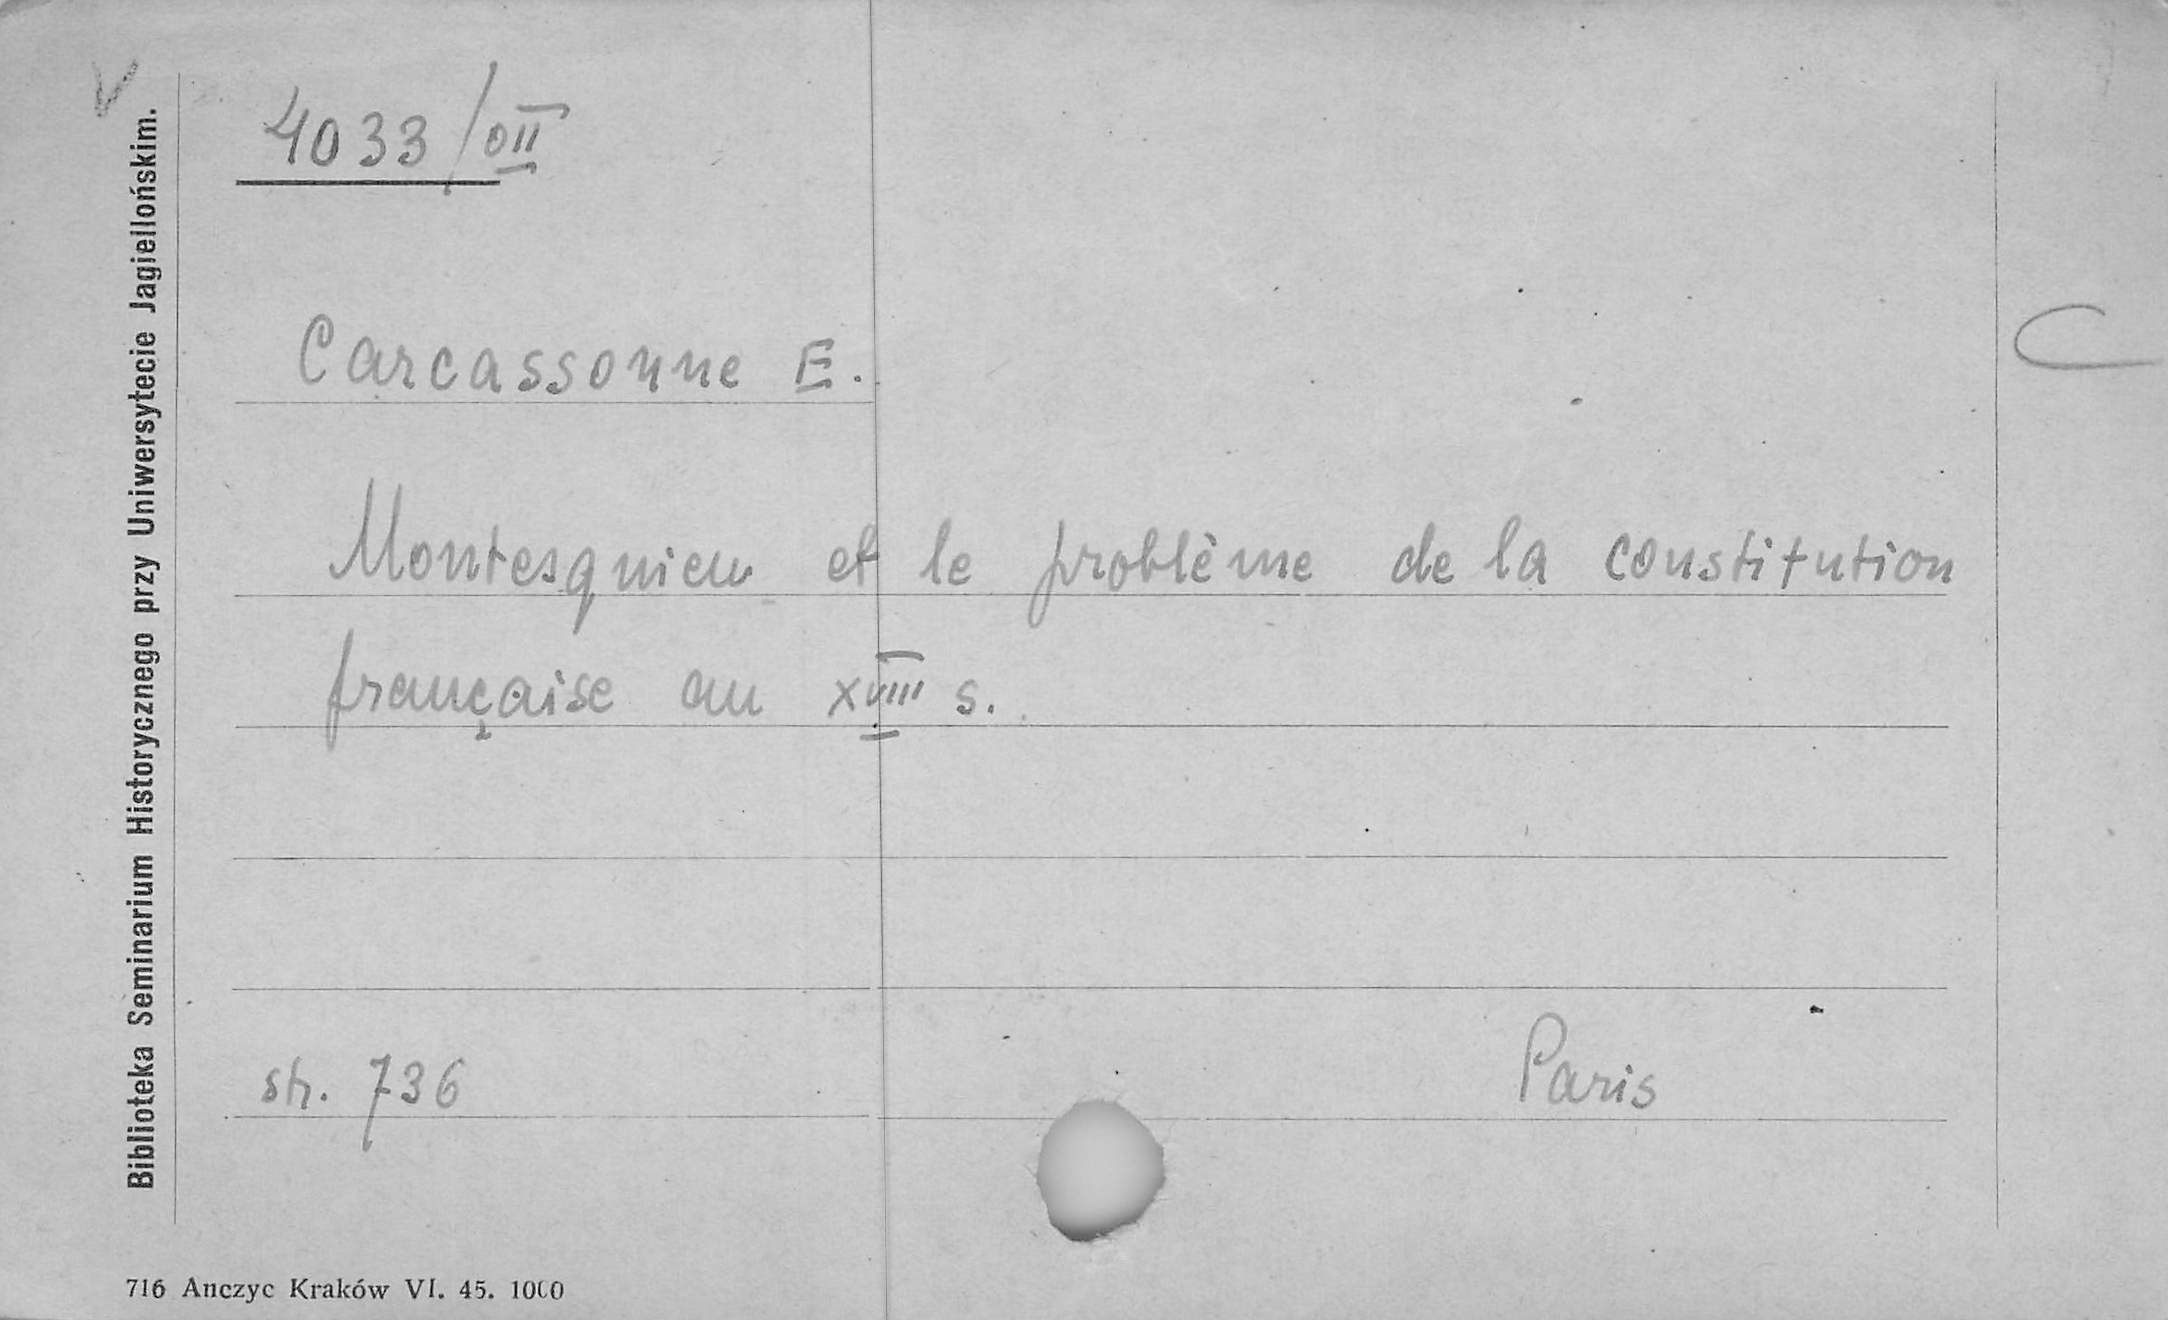 4033/OII
Carcassonne E.
Montesquieu et le problème de la constitution
française au XVIII s.
str. 736
Paris
C
Biblioteka Seminarium Historycznego przy Uniwersytecie Jagiellońskim.
716 Anczyc Kraków VI. 45. 1000